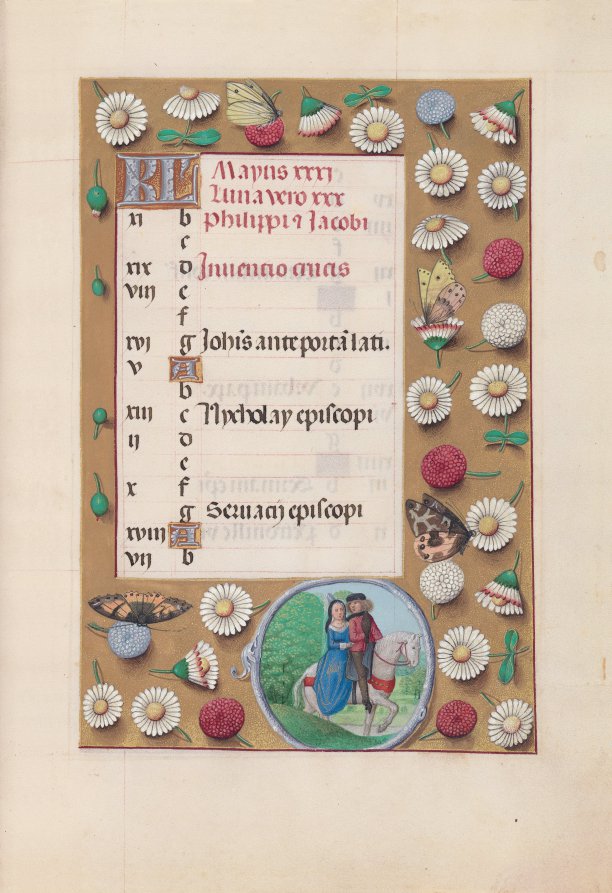 KL Mayus xxxj
Luna vero xxx
xj b Philippi ⁊ Jacobi
c
xix d Inuencio crucis
viij e
f
xvj g Joh̄is ante portā lati.
v A
b
xiij c Nycholay episcopi
ij d
e
x f
g Seruacij episcopi
xviij A
vij b